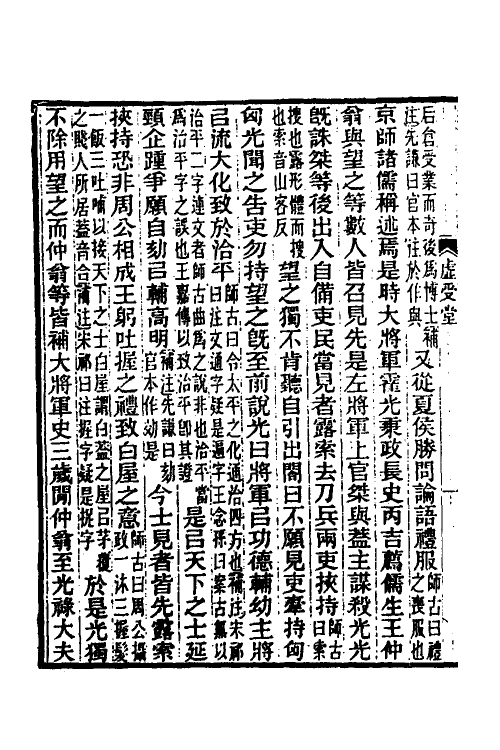 后倉受業而奇後爲博士補注先謙曰官本注於作與又從夏侯勝問論語禮服師古曰禮之喪服也
京師諸儒稱述焉是時大將軍霍光秉政長史丙吉薦儒生王仲
翁與望之等數人皆召見先是左將軍上官桀與蓋主謀殺光光
旣誅桀等後出入自備吏民當見者露索去刀兵兩吏挾持師古曰索
搜也露形體而搜也索音山客反望之獨不肯聽自引出閤曰不願見吏牽持匈
匈光聞之告吏勿持望之旣至前說光曰將軍㠯功德輔幼主將
㠯流大化致於洽平師古曰令太平之化通洽四方也補注宋祁曰注文通字疑是遍字王念孫曰案古無以
洽平二字連文者師古曲爲之說非也洽平當爲治平字之誤也王嘉傳以致治平卽其證是㠯天下之士延
頸企踵爭願自劾㠯輔高明補注先謙曰劾官本作効是今士見者皆先露索
挾持恐非周公相成王躬吐握之禮致白屋之意師古曰周公攝政一沐三握髮
一飯三吐哺以接天下之士白屋謂白蓋之屋㠯茅覆之賤人所居蓋音合補注宋祁曰注握字疑是捉字於是光獨
不除用望之而仲翁等皆補大將軍史三歲閒仲翁至光祿大夫
虛受堂